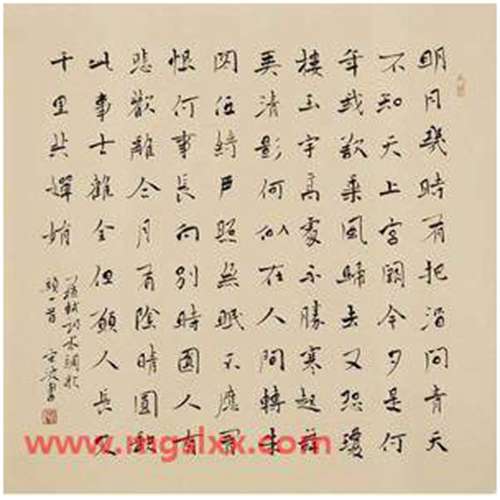 明月幾時有把酒問青天
不知天上宮闕今夕是何
年我欲乘風歸去又恐瓊
樓玉宇高處不勝寒起舞
弄清影何似在人間轉朱
閣低綺戶照無眠不應有
恨何事長向別時圓人有
悲歡離合月有陰晴圓缺
此事古難全但願人長久
千里共嬋娟
蘇軾 水調歌
頭一首 書
www.mgslxx.com